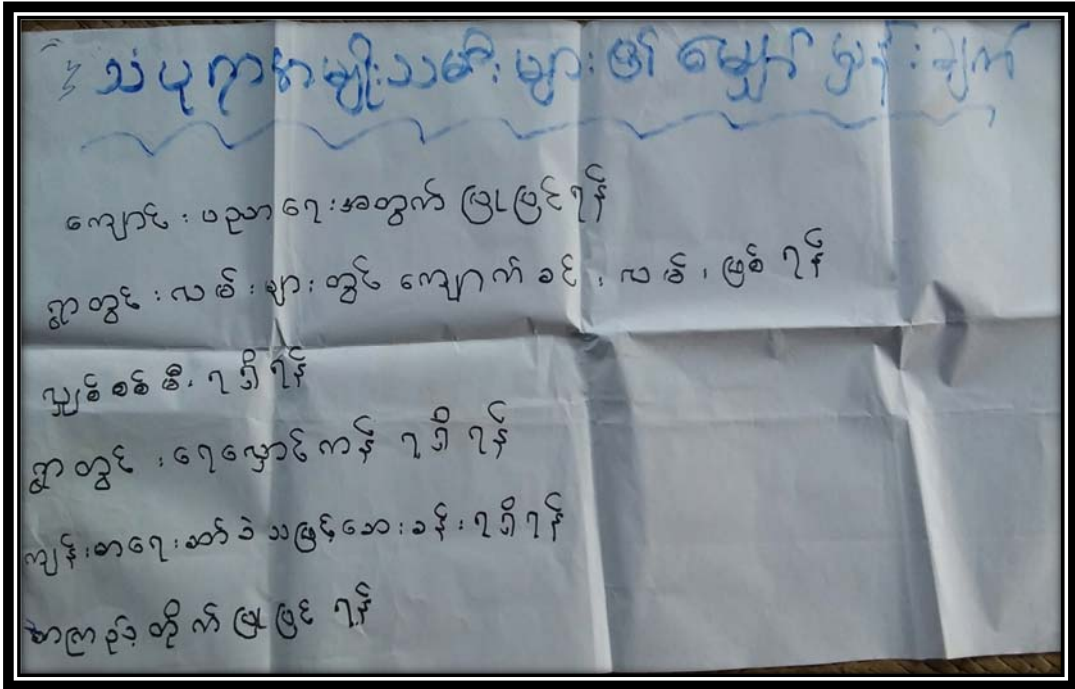 သံပုရာအမျိုးသမီးများ၏ မျှော်မှန်းချက်
ကျောင်းပညာရေးအတွက် ပြုပြင်ရန်
ရွာတွင်းလမ်းများတွင် ကျောက်ခင်းလမ်းဖြစ်ရန်
လျှပ်စစ်မီးရရှိရန်
ရွာတွင်းရေလှောင်ကန် ရရှိရန်
ကျန်းမာရေး သဖြင့်ဆေးခန်းရရှိရန်
စာကြည့်တိုက်ပြုပြင်ရန်